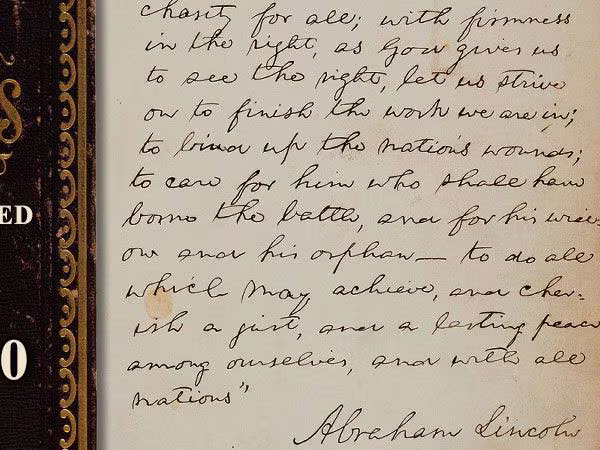 S
ED
0
charity for all; with firmness
in the right, as God gives us
to see the right, let us strive
on to finish the work we are in;
to bind up the nation's wounds;
to care for him who shall have
borne the battle, and for his wid=
ow and his orphan— to do all
which may achieve, and cher=
ish a just, and a lasting peace
among ourselves, and with all
nations"
Abraham Lincoln